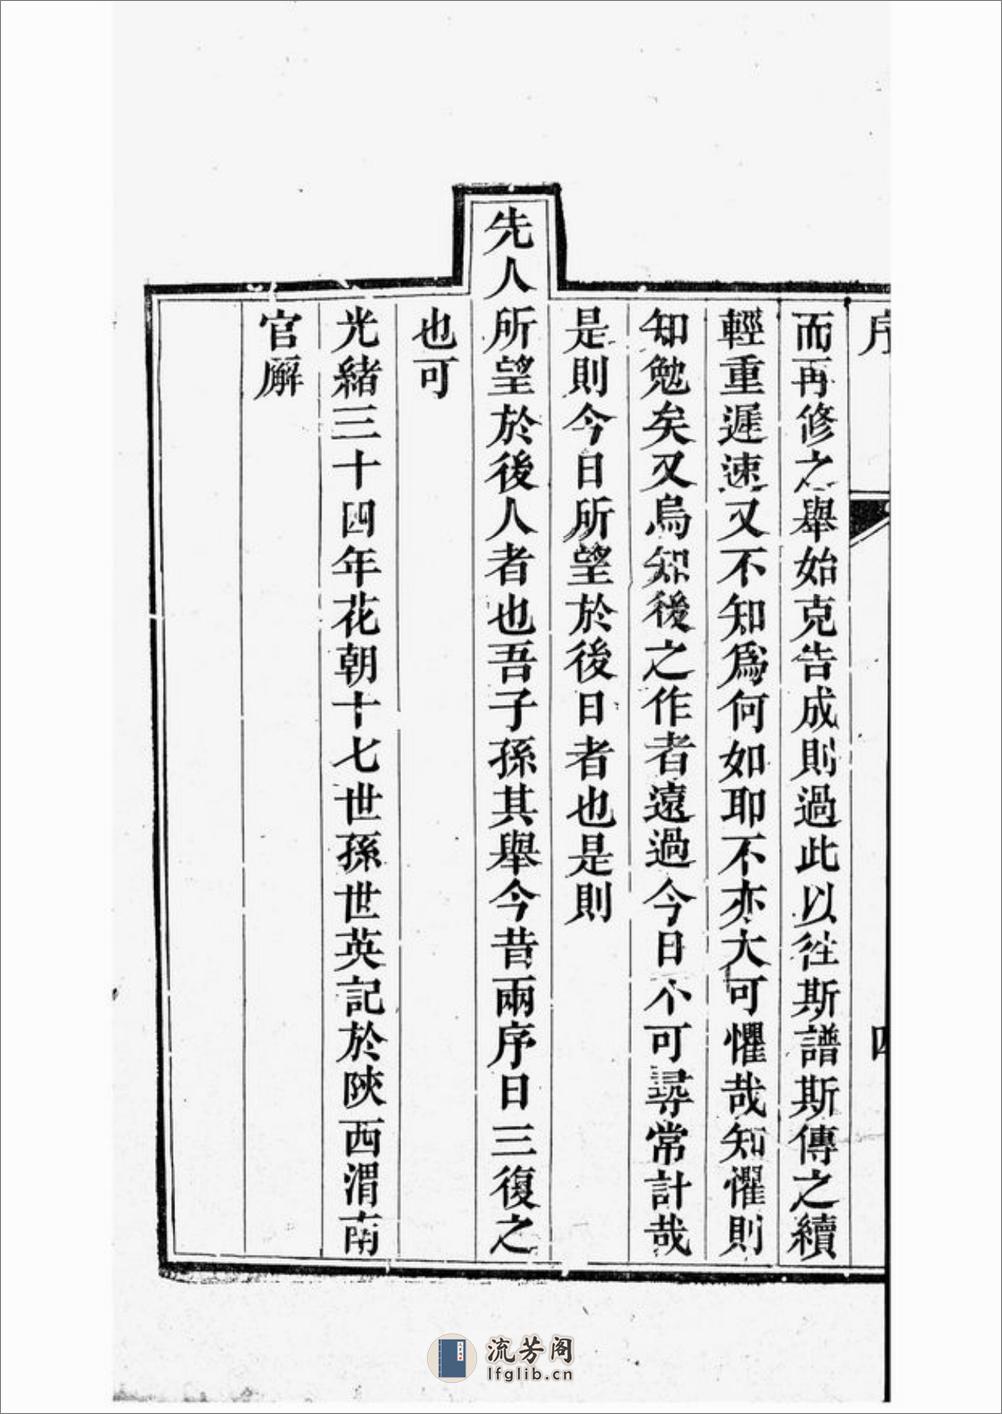 序
四
而再修之舉始克告成則過此以往斯譜斯傳之續
輕重遲速又不知爲何如耶不亦大可懼哉知懼則
知勉矣又烏知後之作者遠過今日不可尋常計哉
是則今日所望於後日者也是則
先人所望於後人者也吾子孫其舉今昔兩序日三復之
也可
光緒三十四年花朝十七世孫世英記於陝西渭南
官廨
流芳阁
lfglib.cn